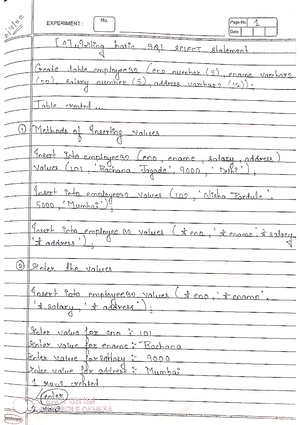 EXPERIMENT:
No.
Page No. 1
Date
[A] Writing basic SQL SELECT statement
Create table employee90 (eno number (5), ename varchar2
(20), salary number (5), address varchar2 (12));
Table created ...
① Methods of Inserting values
Insert into employee90 (eno, ename, salary, address)
values (101, 'Rachana Jagade', 9000, 'Delhi');
Insert into employee90 values (102, 'Nisha
5000, 'Mumbai');
Insert into employee90 values (
address');
② Enter the values
Insert into employee90 values (
salary, address');
Enter value for eno : 101
Enter value for ename : Rachana
Enter value for salary : 9000
Enter value for address : Mumbai
1 rows created
enter